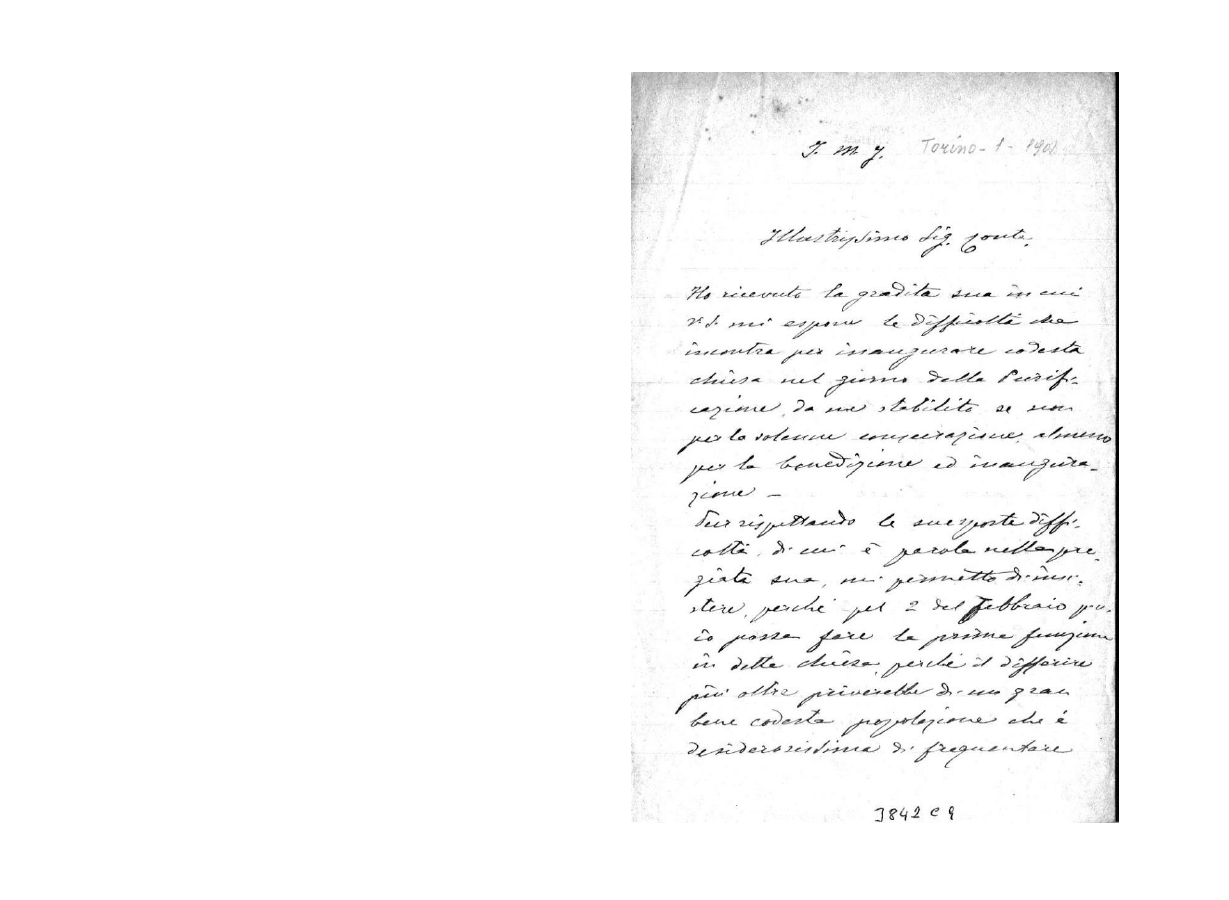 J. M. J. Torino - 1 - 1901
Illustrissimo Sig. Conte.
Ho ricevuto la gradita sua in cui
V. S. mi espone le difficoltà che
incontra per inaugurare codesta
chiesa nel giorno della Purifi-
cazione, da me stabilito se non
per la solenne consecrazione, almeno
per la benedizione ed inaugura-
zione —
Pur rispettando le suesposte diffi-
coltà, di cui è parola nella pre-
giata sua, mi permetto di insi-
stere, perché pel 2 del febbraio p.v.
io possa fare la prima funzione
in detta chiesa, perché il differire
più oltre priverebbe di un gran
bene codesta popolazione che è
desiderosissima di frequentare
3842 C 9